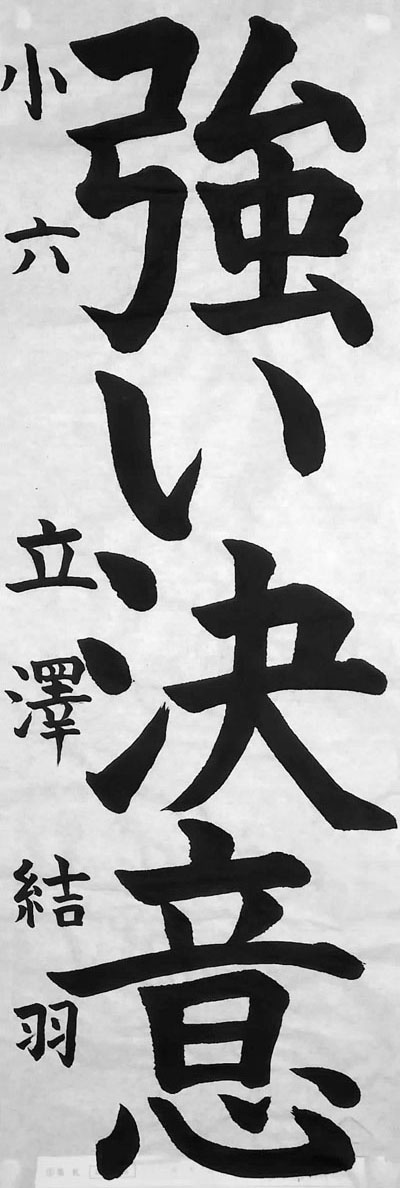 強い決意
小六 立澤 結羽